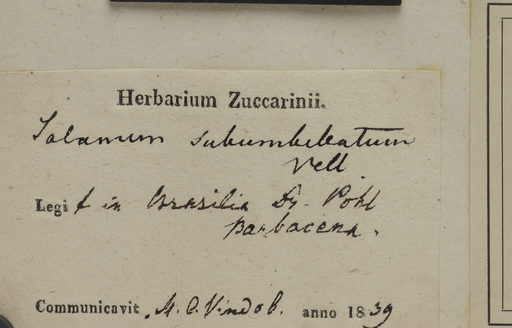 Herbarium Zuccarinii.
Solanum subumbellatum
Vell.
Legit in Brasilia Dr. Pohl
Barbacena.
Communicavit M. C. Vindob. anno 1839